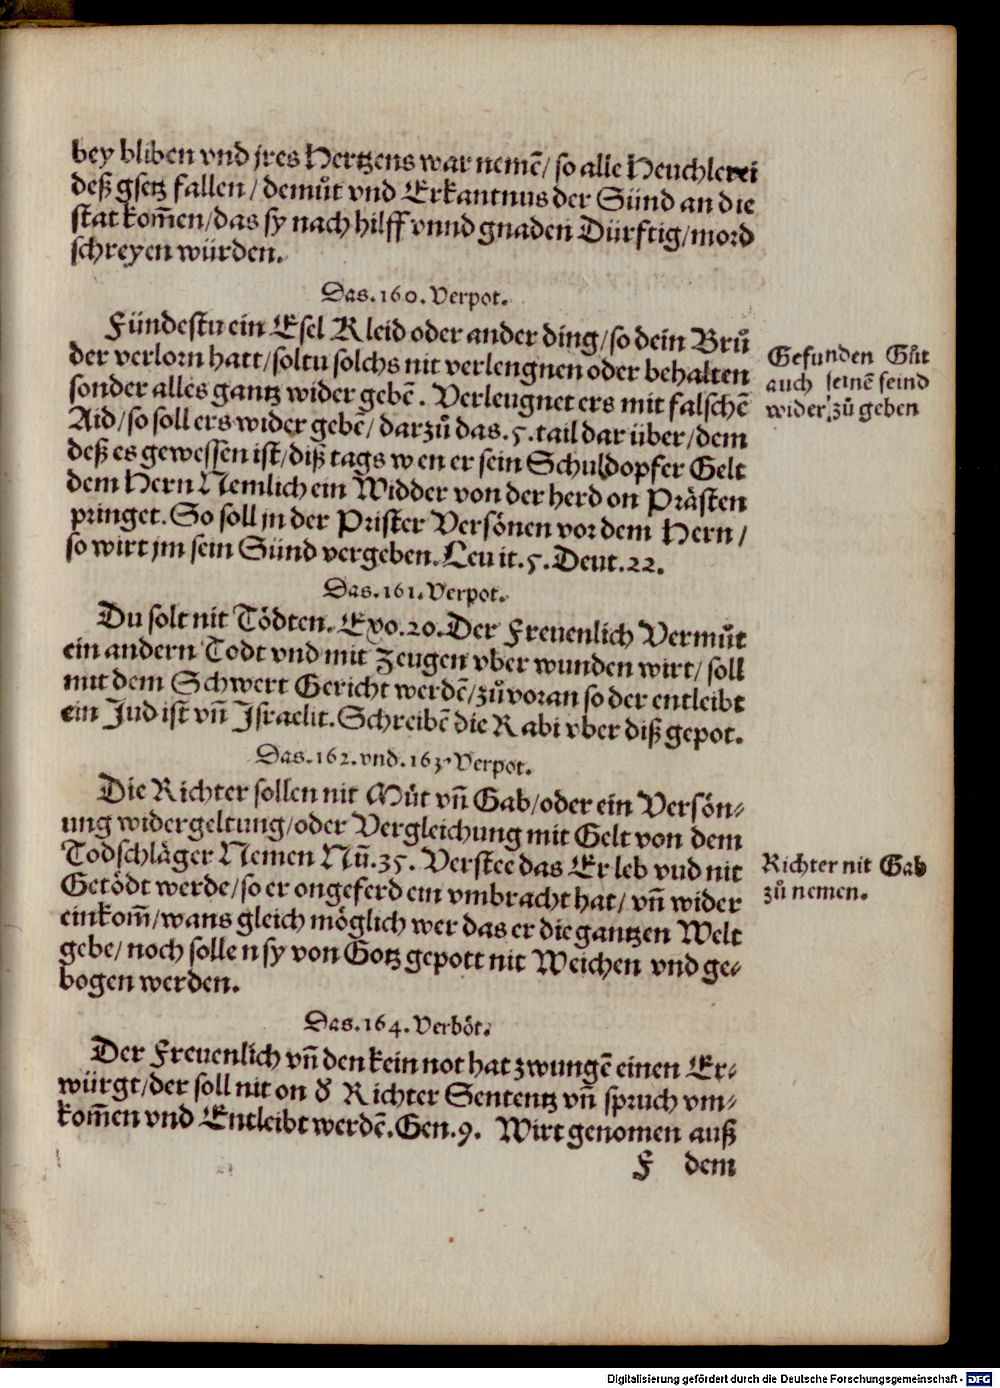 bey bliben vnd jres Hertzens war nemē/ so alle Heuchlerei
deß gsetz fallen/ demuͦt vnd Erkantnus der Sünd an die
stat kom̄en/das sy nach hilff vnnd gnaden Dürftig/mord
schreyen würden.
Das.160.Verpot.
Fündestu ein Esel Kleid oder ander ding/so dein Bruͦ
der verlorn hatt/soltu solchs nit verlengnen oder behalten
sonder alles gantz wider gebē. Verleugnet ers mit falschē
Aid/so soll ers wider gebē/ darzuͦ das.5.tail dar über/dem
deß es gewessen ist/diß tags wen er sein Schuldopfer Gelt
dem Hern Nemlich ein Widder von der herd on Prästen
pringet. So soll jn der Prister Versönen vor dem Hern/
so wirt jm sein Sünd vergeben.Leuit.5.Deut.22.
Gefunden Guͦt
auch seinē feind
wider zuͦ geben
Das.161.Verpot.
Du solt nit Tödten. Exo.20.Der Freuenlich Vermuͦt
ein andern Todt vnd mit Zeugen vber wunden wirt/ soll
mit dem Schwert Gericht werdē/zuͦuoran so der entleibt
ein Jud ist vn̄ Israelit.Schreibē die Rabi vber diß gepot.
Das.162.vnd.163.Verpot.
Die Richter sollen nit Muͦt vn̄ Gab/oder ein Versön⸗
ung widergeltung/oder Vergleichung mit Gelt von dem
Todschläger Nemen Nū.35. Verstee das Er leb vnd nit
Getödt werde/so er ongeferd ein vmbracht hat/ vn̄ wider
einkom̄/wans gleich möglich wer das er die gantzen Welt
gebe/ noch sollen sy von Gotz gepott nit Weichen vnd ge⸗
bogen werden.
Richter nit Gab
zuͦ nemen.
Das.164.Verböt.
Der Freuenlich vn̄ den kein not hat zwungē einen Er⸗
würgt/der soll nit on ð Richter Sententz vn̄ spruch vm⸗
kom̄en vnd Entleibt werdē.Gen.9. Wirt genomen auß
F dem
Digitalisierung gefördert durch die Deutsche Forschungsgemeinschaft - DFG